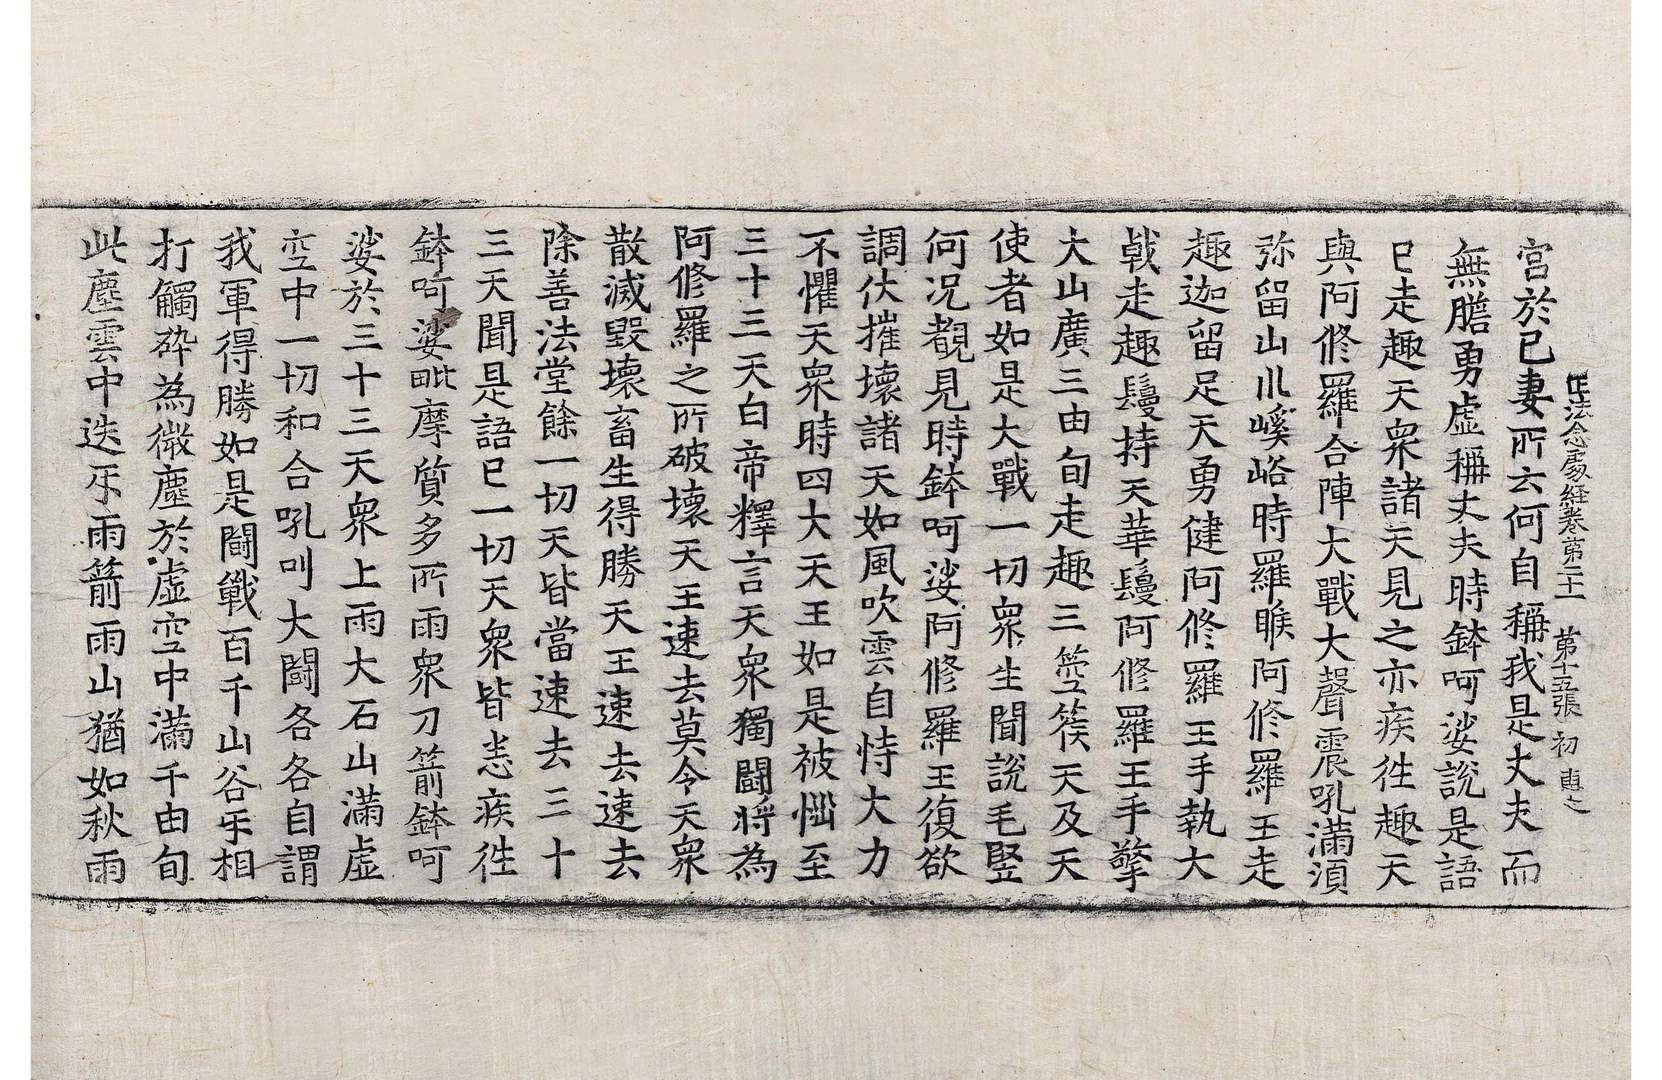 正法念處経卷第二十一 第十五張 初 
宮於已妻所云何自稱我是丈夫而
無膽勇虛稱丈夫時鉢呵娑說是語
已走趣天衆諸天見之亦疾往趣天
與阿修羅合陣大戰大聲震吼滿須
弥留山川嵠峪時羅睺阿修羅王走
趣迦留足天勇健阿修羅王手執大
戟走趣鬘持天華鬘阿修羅王手擎
大山廣三由旬走趣三箜篌天及天
使者如是大戰一切衆生聞說毛竪
何況覩見時鉢呵娑阿修羅王復欲
調伏摧壞諸天如風吹雲自恃大力
不懼天衆時四大天王如是被惱至
三十三天白帝釋言天衆獨闘將為
阿修羅之所破壞天王速去莫令天衆
散滅毀壞畜生得勝天王速去速去
除善法堂餘一切天皆當速去三十
三天聞是語已一切天衆皆悉疾往
鉢呵娑毗摩質多所雨衆刀箭鉢呵
娑於三十三天衆上雨大石山滿虛
空中一切和合吼叫大闘各各自謂
我軍得勝如是闘戰百千山谷㸦相
打觸碎為微塵於虛空中滿千由旬
此塵雲中迭㸦雨箭雨山猶如秋雨